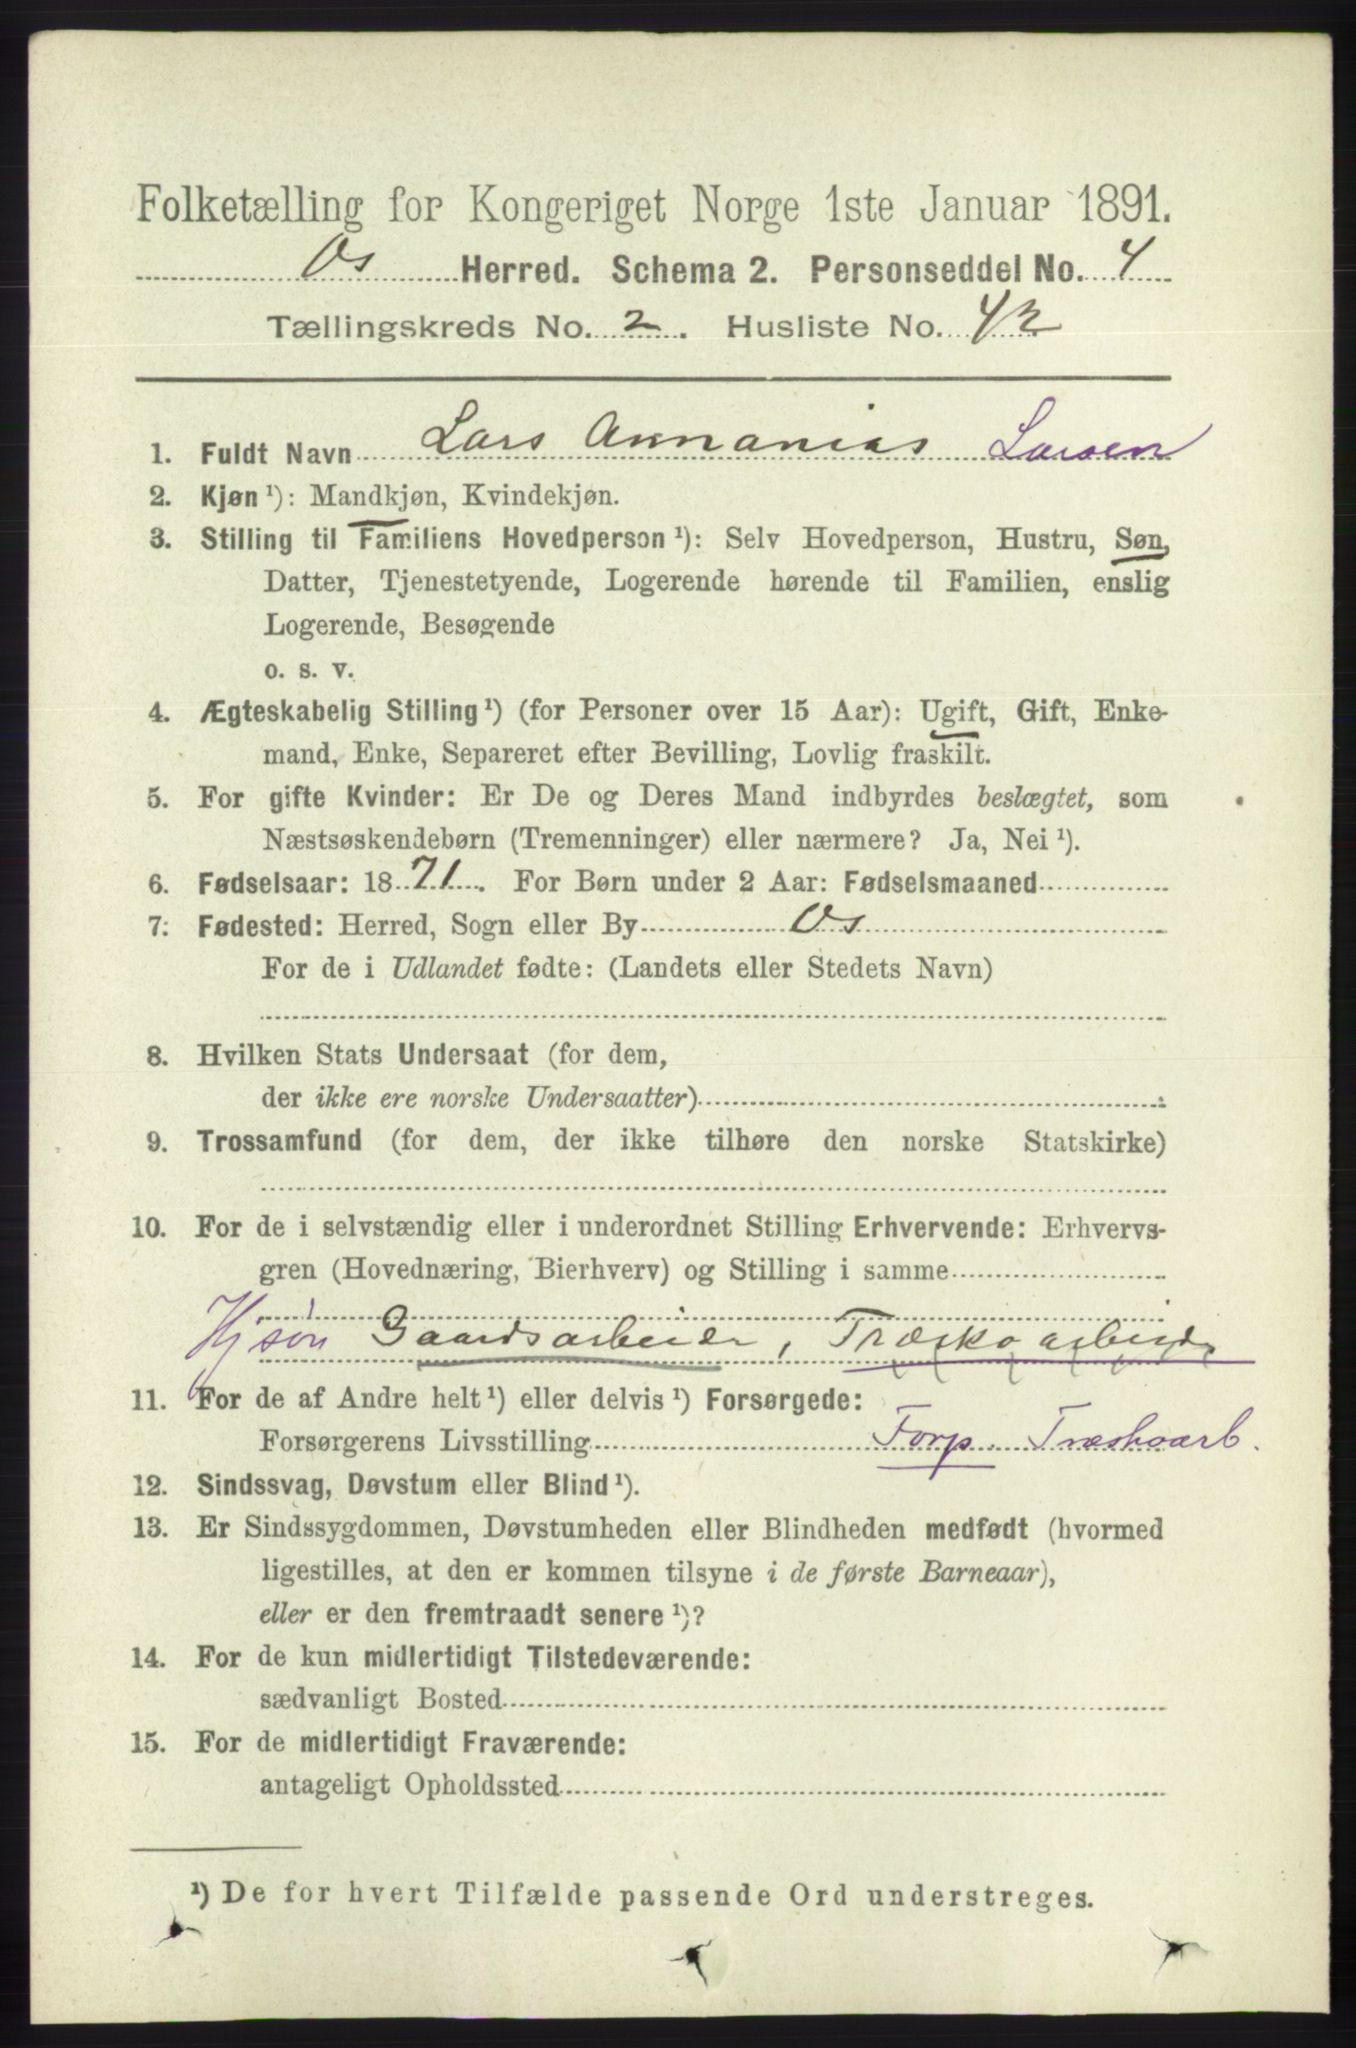 Folketælling for Kongeriget Norge 1ste Januar 1891.
Os Herred. Schema 2. Personseddel No. 4
Tællingskreds No. 2. Husliste No. 42
1. Fuldt Navn Lars Annanias Larsen
2. Kjøn ¹): Mandkjøn, Kvindekjøn.
3. Stilling til Familiens Hovedperson ¹): Selv Hovedperson, Hustru, Søn,
Datter, Tjenestetyende, Logerende hørende til Familien, enslig
Logerende, Besøgende
o. s. v.
4. Ægteskabelig Stilling ¹) (for Personer over 15 Aar): Ugift, Gift, Enke-
mand, Enke, Separeret efter Bevilling, Lovlig fraskilt.
5. For gifte Kvinder: Er De og Deres Mand indbyrdes beslægtet, som
Næstsøskendebørn (Tremenninger) eller nærmere? Ja, Nei ¹).
6. Fødselsaar: 1871. For Børn under 2 Aar: Fødselsmaaned
7. Fødested: Herred, Sogn eller By Os
For de i Udlandet fødte: (Landets eller Stedets Navn)
8. Hvilken Stats Undersaat (for dem,
der ikke ere norske Undersaatter)
9. Trossamfund (for dem, der ikke tilhøre den norske Statskirke)
10. For de i selvstændig eller i underordnet Stilling Erhvervende: Erhvervs-
gren (Hovednæring, Bierhverv) og Stilling i samme
Hj søn Gaardsarbeider, Træskoarbeide
11. For de af Andre helt ¹) eller delvis ¹) Forsørgede:
Forsørgerens Livsstilling Forp. Træskoarb.
12. Sindssvag, Døvstum eller Blind ¹).
13. Er Sindssygdommen, Døvstumheden eller Blindheden medfødt (hvormed
ligestilles, at den er kommen tilsyne i de første Barneaar),
eller er den fremtraadt senere ¹)?
14. For de kun midlertidigt Tilstedeværende:
sædvanligt Bosted
15. For de midlertidigt Fraværende:
antageligt Opholdssted
¹) De for hvert Tilfælde passende Ord understreges.